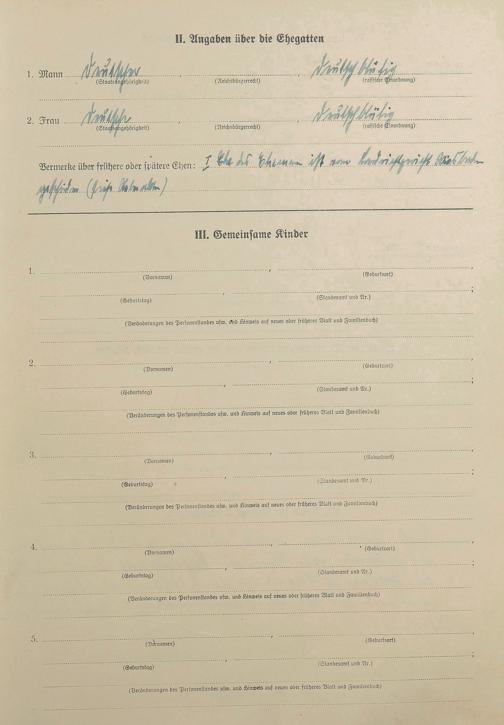 II. Angaben über die Ehegatten
1. Mann Deutscher, , deutschblütig
(Staatsangehörigkeit) (Reichsbürgerrecht) (rassische Einordnung)
2. Frau Deutsche, , deutschblütig
(Staatsangehörigkeit) (Reichsbürgerrecht) (rassische Einordnung)
Vermerke über frühere oder spätere Ehen: I Ehe des Ehemann ist vom Landgericht
geschieden (siehe
III. Gemeinsame Kinder
1. ,
(Vornamen) (Geburtsort)
, ;
(Geburtstag) (Standesamt und Nr.)
(Veränderungen des Personenstandes usw. und Hinweis auf neues oder früheres Blatt und Familienbuch)
2. ,
(Vornamen) (Geburtsort)
, ;
(Geburtstag) (Standesamt und Nr.)
(Veränderungen des Personenstandes usw. und Hinweis auf neues oder früheres Blatt und Familienbuch)
3. ,
(Vornamen) (Geburtsort)
, ;
(Geburtstag) (Standesamt und Nr.)
(Veränderungen des Personenstandes usw. und Hinweis auf neues oder früheres Blatt und Familienbuch)
4. ,
(Vornamen) (Geburtsort)
, ;
(Geburtstag) (Standesamt und Nr.)
(Veränderungen des Personenstandes usw. und Hinweis auf neues oder früheres Blatt und Familienbuch)
5. ,
(Vornamen) (Geburtsort)
, ;
(Geburtstag) (Standesamt und Nr.)
(Veränderungen des Personenstandes usw. und Hinweis auf neues oder früheres Blatt und Familienbuch)